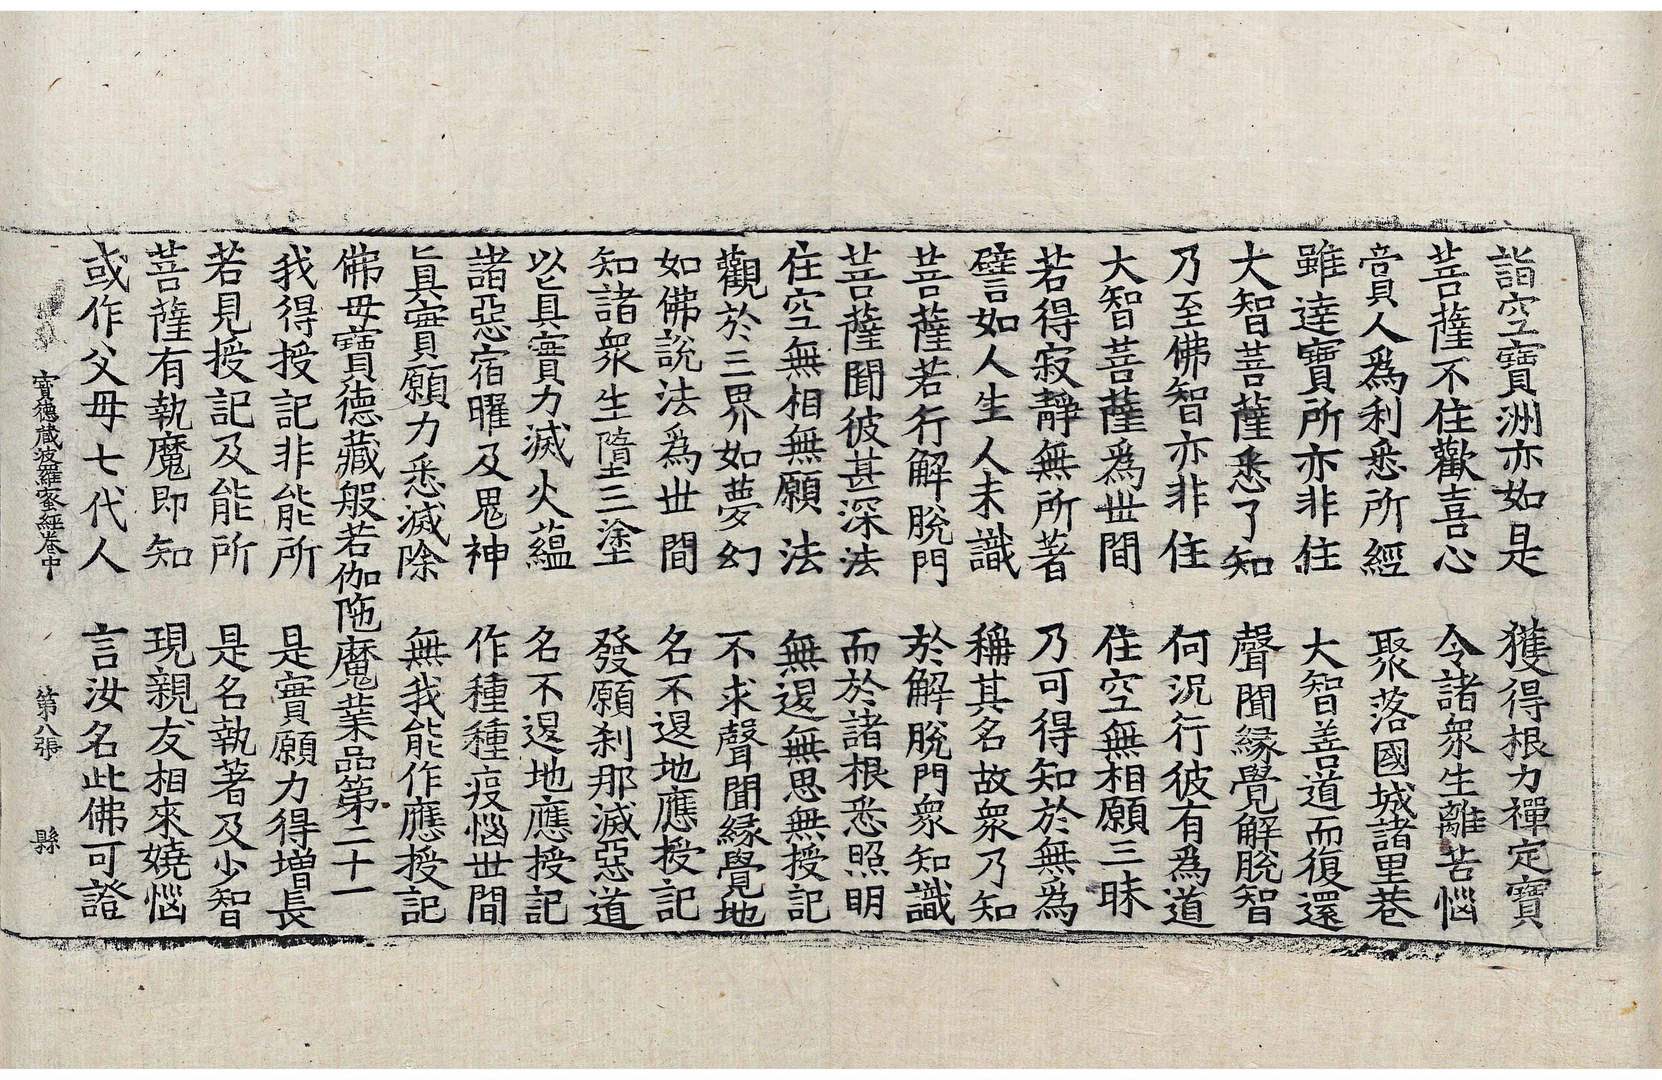 詣空寶洲亦如是　獲得根力禪定寶
菩薩不住歡喜心　令諸眾生離苦惱
啇人爲利悉所經　聚落國城諸里巷
雖達寶所亦非住　大智善道而復還
大智菩薩悉了知　聲聞緣覺解脫智
乃至佛智亦非住　何況行彼有爲道
大智菩薩爲世間　住空無相願三昧
若得寂靜無所著　乃可得知於無爲
譬如人生人未識　稱其名故衆乃知
菩薩若行解脫門　於解脫門衆知識
菩薩聞彼甚深法　而於諸根悉照明
住空無相無願法　無退無思無授記
觀於三界如夢幻　不求聲聞緣覺地
如佛說法爲世間　名不退地應授記
知諸衆生墮三塗　發願刹那滅惡道
以眞實力滅火蘊　名不退地應授記
諸惡宿曜及鬼神　作種種疫惱世間
眞實願力悉滅除　無我能作應授記
佛母寶德藏般若伽陁魔業品第二十一
我得授記非能所　是實願力得增長
若見授記及能所　是名執著及少智
菩薩有執魔即知　現親友相來嬈惱
或作父母七代人　言汝名此佛可證
寶德藏波羅蜜經卷中　第八張　縣